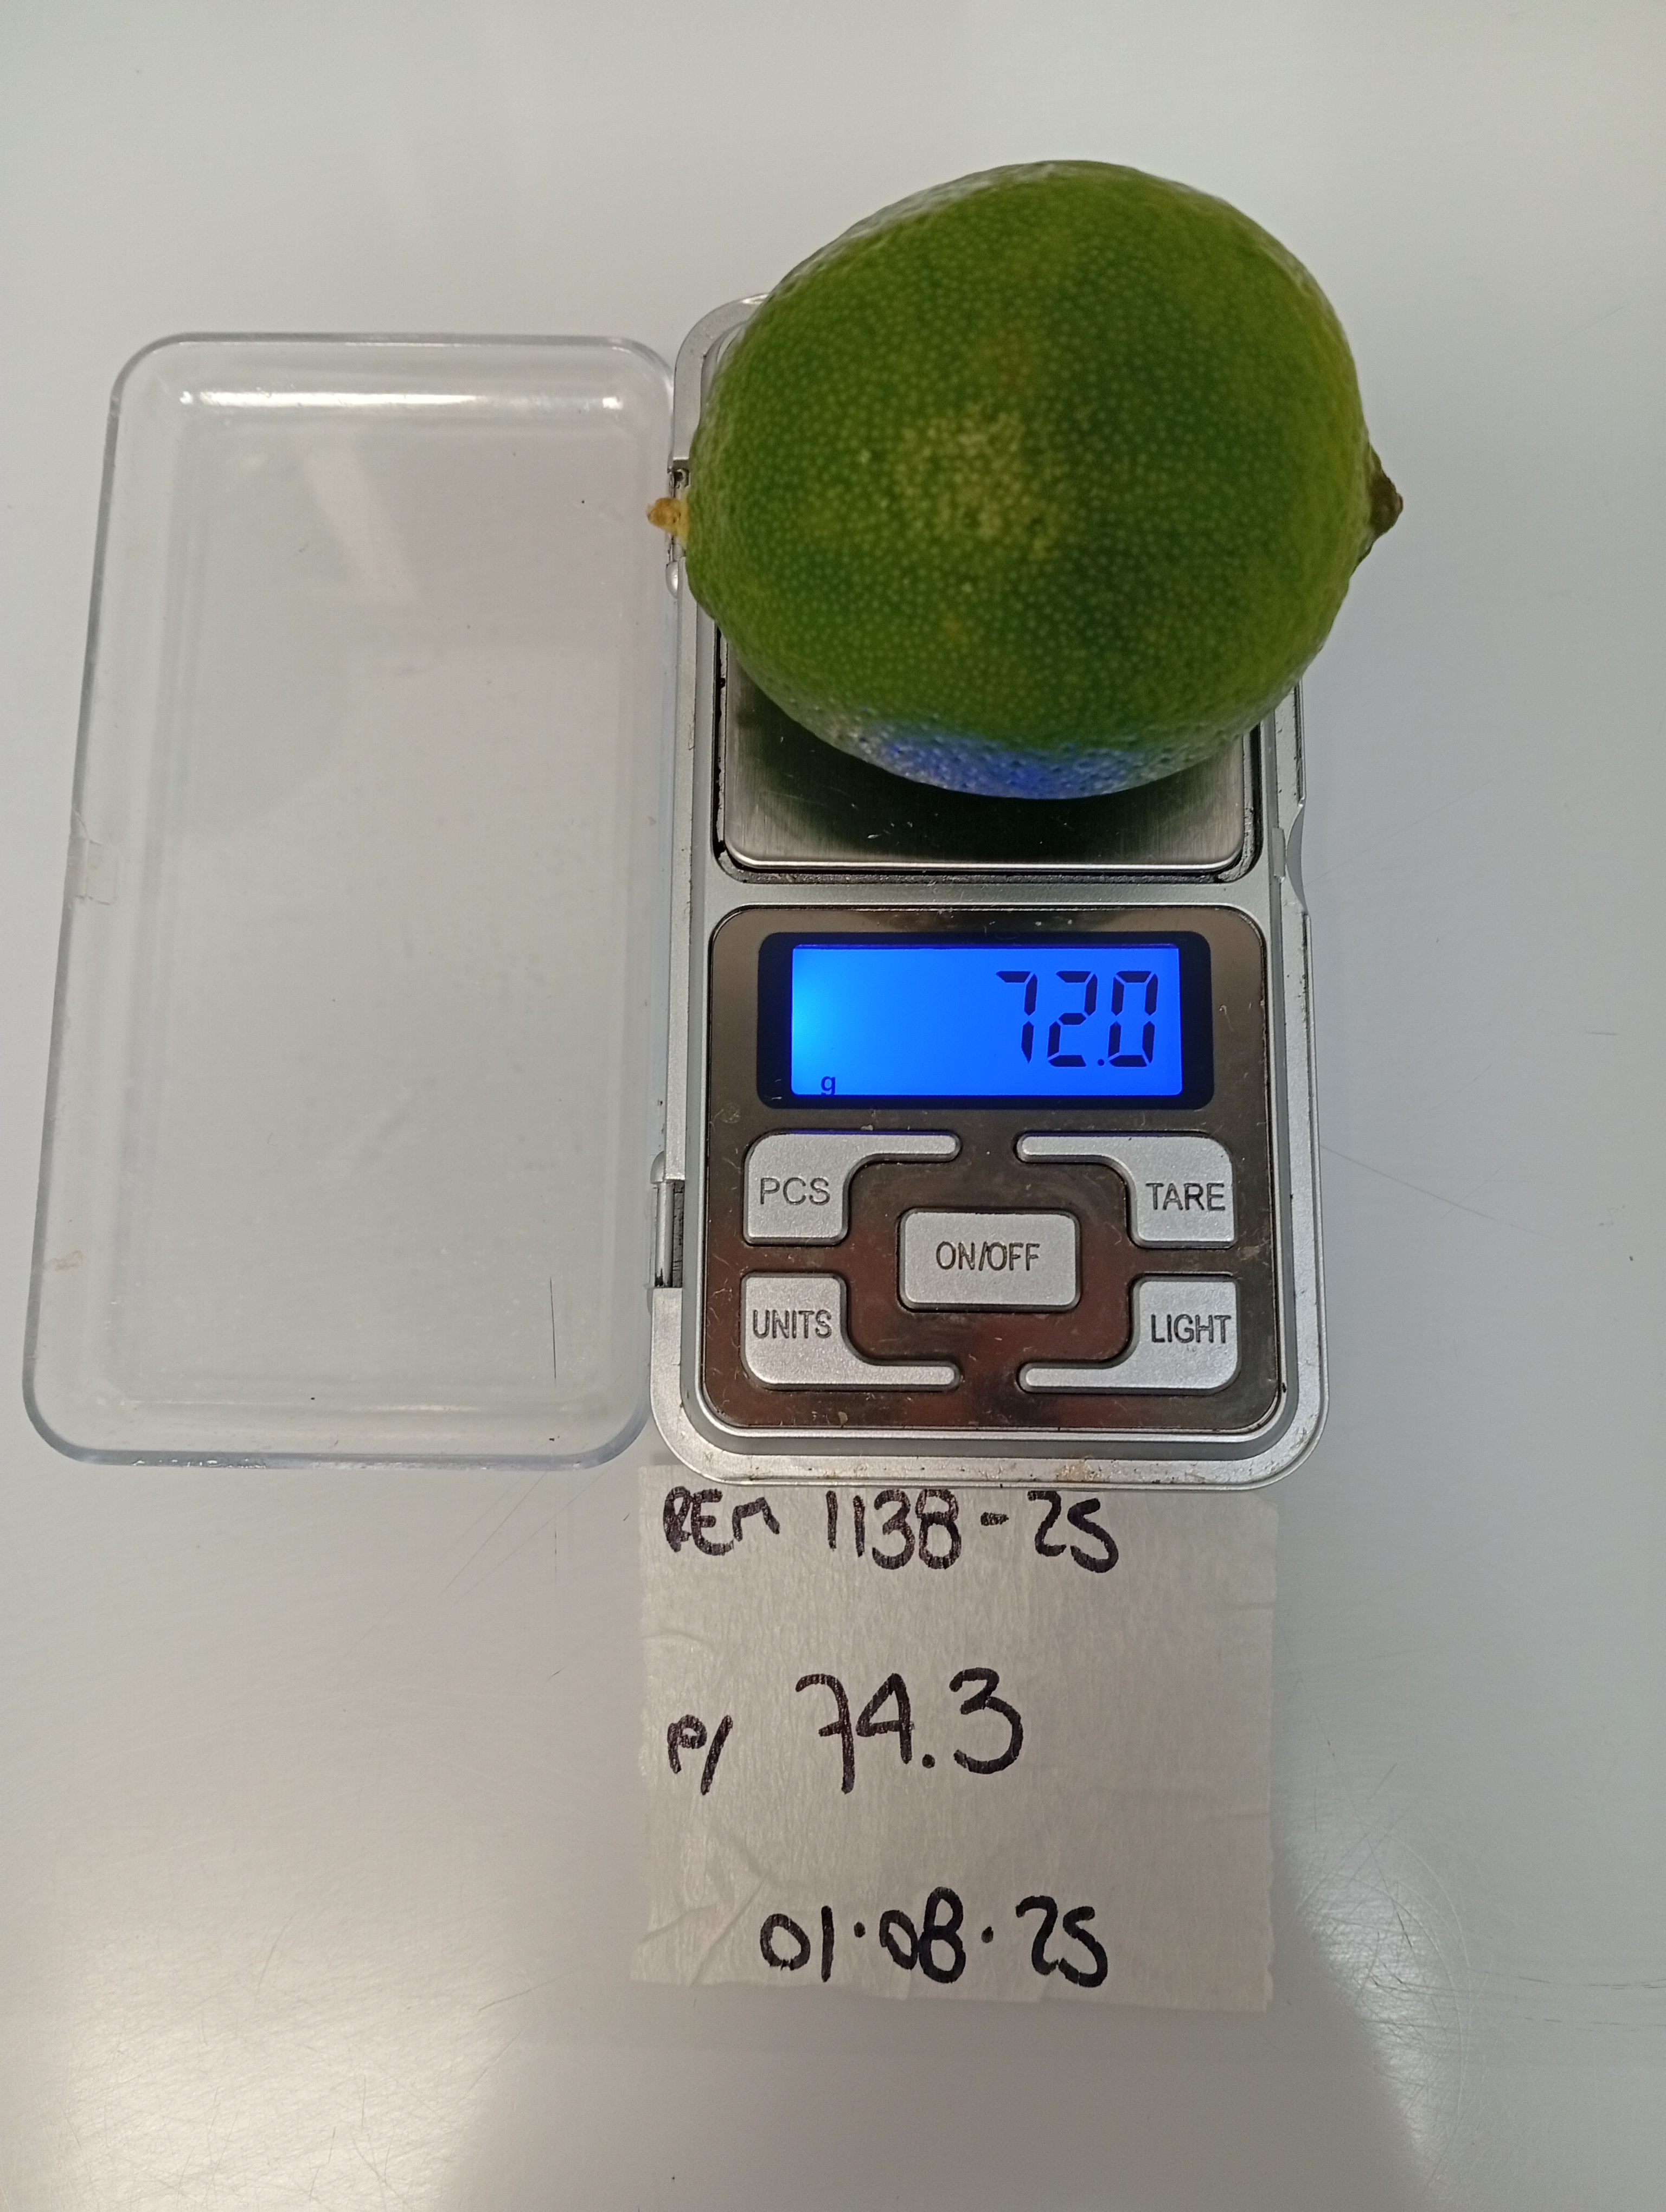 72.0
g
PCS
TARE
ON/OFF
UNITS
LIGHT
REM 1138-25
P/ 74.3
01.08.25